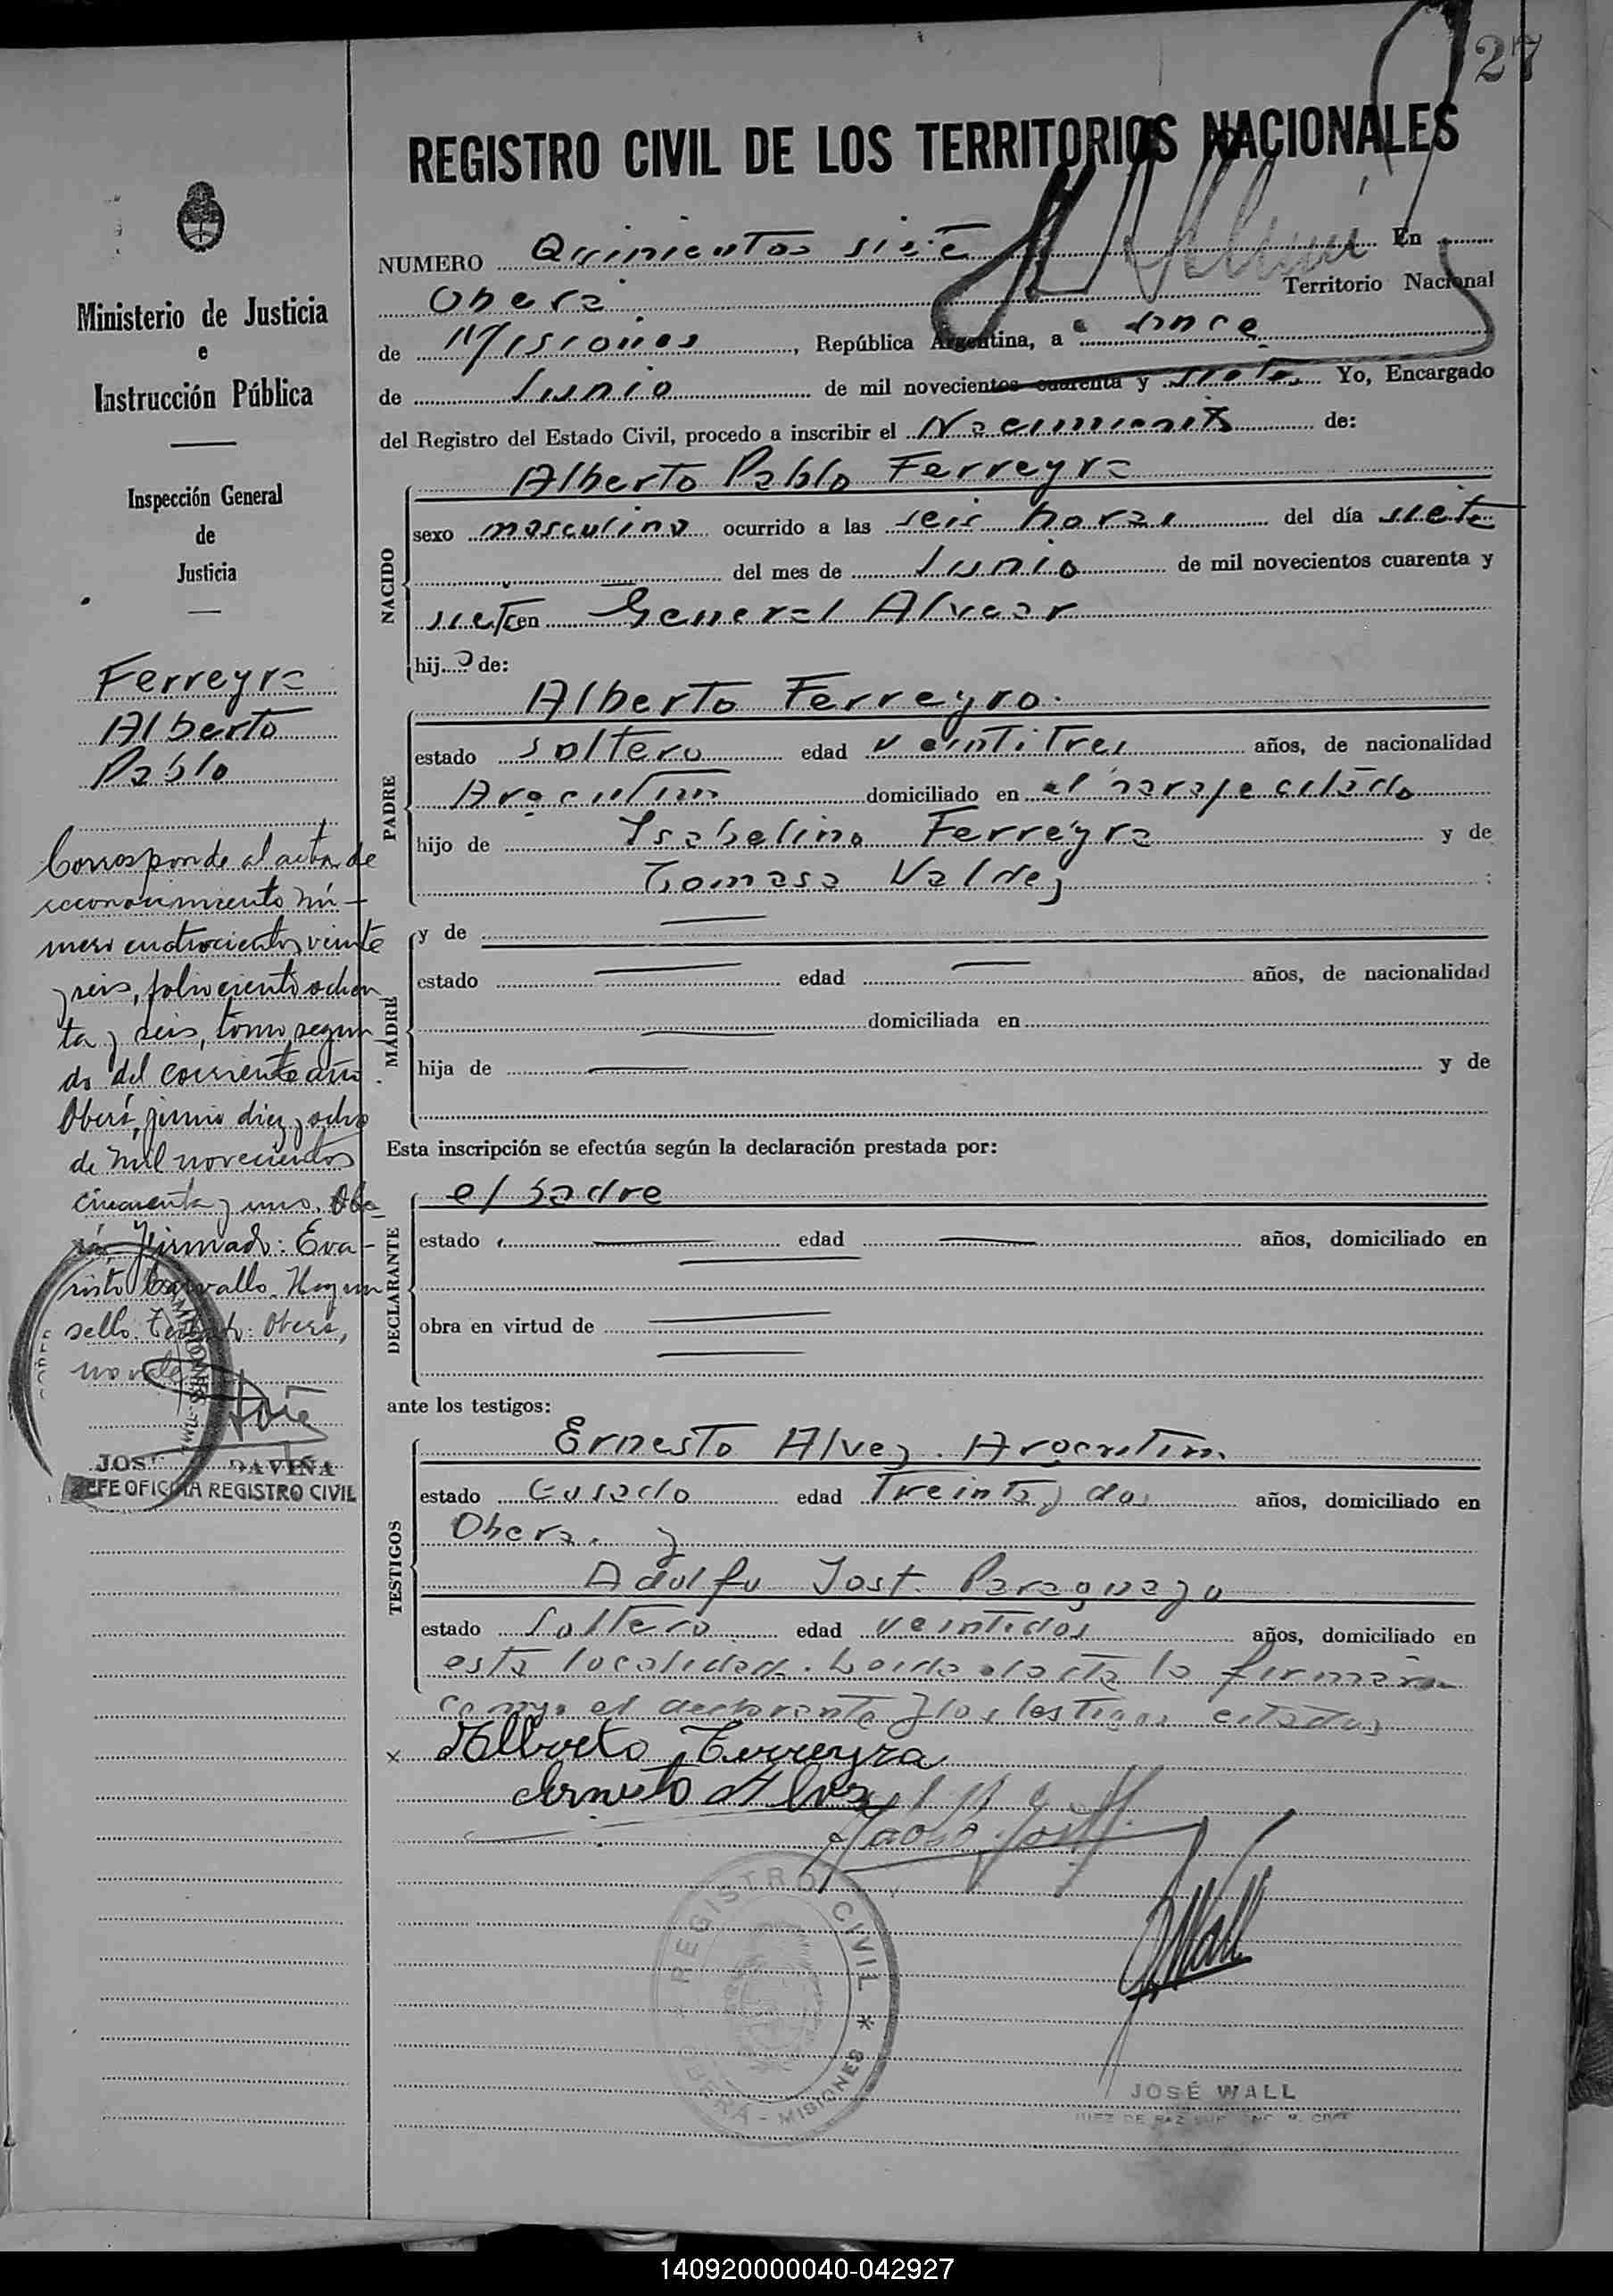 27
REGISTRO CIVIL DE LOS TERRITORIOS NACIONALES
NUMERO Quinientos siete En
Oberá Territorio Nacional
de Misiones, República Argentina, a once
de Junio de mil novecientos cuarenta y siete. Yo, Encargado
del Registro del Estado Civil, procedo a inscribir el Nacimiento de:
NACIDO
Alberto Pablo Ferreyra
sexo masculino ocurrido a las seis horas del día siete
del mes de Junio de mil novecientos cuarenta y
siete en General Alvear
hijo de:
PADRE
Alberto Ferreyro.
estado soltero edad veintitres años, de nacionalidad
Argentino domiciliado en el paraje citado
hijo de Isabelino Ferreyra y de
Tomasa Valdez
MADRE
y de
estado edad años, de nacionalidad
domiciliada en
hija de y de
Esta inscripción se efectúa según la declaración prestada por:
DECLARANTE
el padre
estado edad años, domiciliado en
obra en virtud de
ante los testigos:
TESTIGOS
Ernesto Alvez. Argentino.
estado Casado edad Treinta y dos años, domiciliado en
Oberá. y
Adolfo Jost. Paraguayo
estado Soltero edad veintidos años, domiciliado en
esta localidad. Leida el acta la firmaron
conmigo el declarante y los testigos citados
x Alberto Ferreyra
Ernesto Alvez
Adolfo Jost
JWall
REGISTRO CIVIL * OBERÁ - MISIONES
JOSÉ WALL
JUEZ DE PAZ
Ministerio de Justicia
e
Instrucción Pública
Inspección General
de
Justicia
Ferreyra
Alberto
Pablo
Corresponde al acta de
reconocimiento nú-
mero cuatrocientos veinte
y seis, folio ciento ochen
ta y seis, tomo segun
do del corriente año.
Oberá, junio diez y ocho
de mil novecientos
cincuenta y uno. Obe-
rá, Firmado: Eva-
risto Carvallo. Hay un
sello. Oberá,
MISIONES
JOSÉ DAVIÑA
JEFE OFICINA REGISTRO CIVIL
140920000040-042927